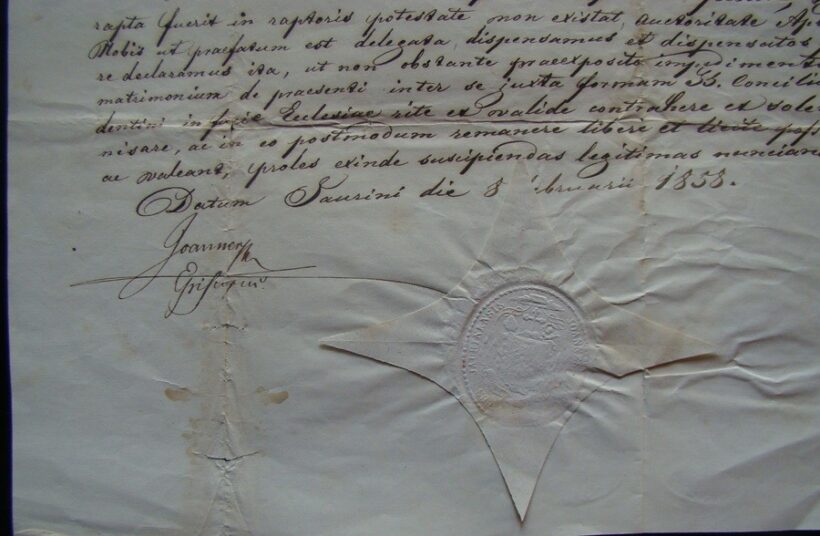 rapta fuerit in raptoris potestate non existat, auctoritate Ap
Nobis ut praefatum est delegata, dispensamus et dispensatos
re declaramus ita, ut non obstante praeexposito impediment
matrimonium de praesenti inter se juxta formam SS. Concilii
dentini in facie Ecclesiae rite et valide contrahere et solem
nisare, ac in eo postmodum remanere libere et licite poss
ac valeant, proles exinde suscipiendas legitimas nuncian
Datum Jaurini die 8 ebruarii 1858.
Joannes
Episcopus